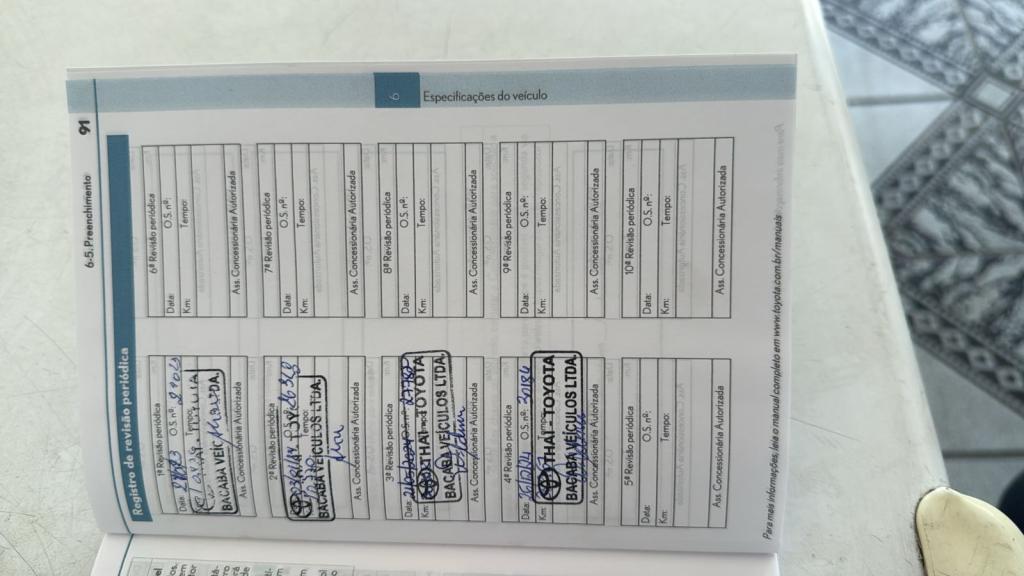 6-5. Preenchimento 91
Registro de revisão periódica
1ª Revisão periódica
Data: O.S. nº:
Tempo:
THAI - TOYOTA
BACABA VEÍC LTDA.
Ass. Concessionária Autorizada
2ª Revisão periódica
Tempo:
BACABA VEICULOS LTDA.
Ass. Concessionária Autorizada
3ª Revisão periódica
Data: O.S. nº:
Km:
THAI - TOYOTA
BACABA VEICULOS LTDA.
Ass. Concessionária Autorizada
4ª Revisão periódica
Data: O.S. nº: 31184
Km: Tempo:
THAI - TOYOTA
BACABA VEÍCULOS LTDA.
Ass. Concessionária Autorizada
5ª Revisão periódica
Data: O.S. nº:
Km: Tempo:
Ass. Concessionária Autorizada
6ª Revisão periódica
Data: O.S. nº:
Km: Tempo:
Ass. Concessionária Autorizada
7ª Revisão periódica
Data: O.S. nº:
Km: Tempo:
Ass. Concessionária Autorizada
8ª Revisão periódica
Data: O.S. nº:
Km: Tempo:
Ass. Concessionária Autorizada
9ª Revisão periódica
Data: O.S. nº:
Km: Tempo:
Ass. Concessionária Autorizada
10ª Revisão periódica
Data: O.S. nº:
Km: Tempo:
Ass. Concessionária Autorizada
6
Especificações do veículo
Para mais informações, leia o manual completo em www.toyota.com.br/manuais